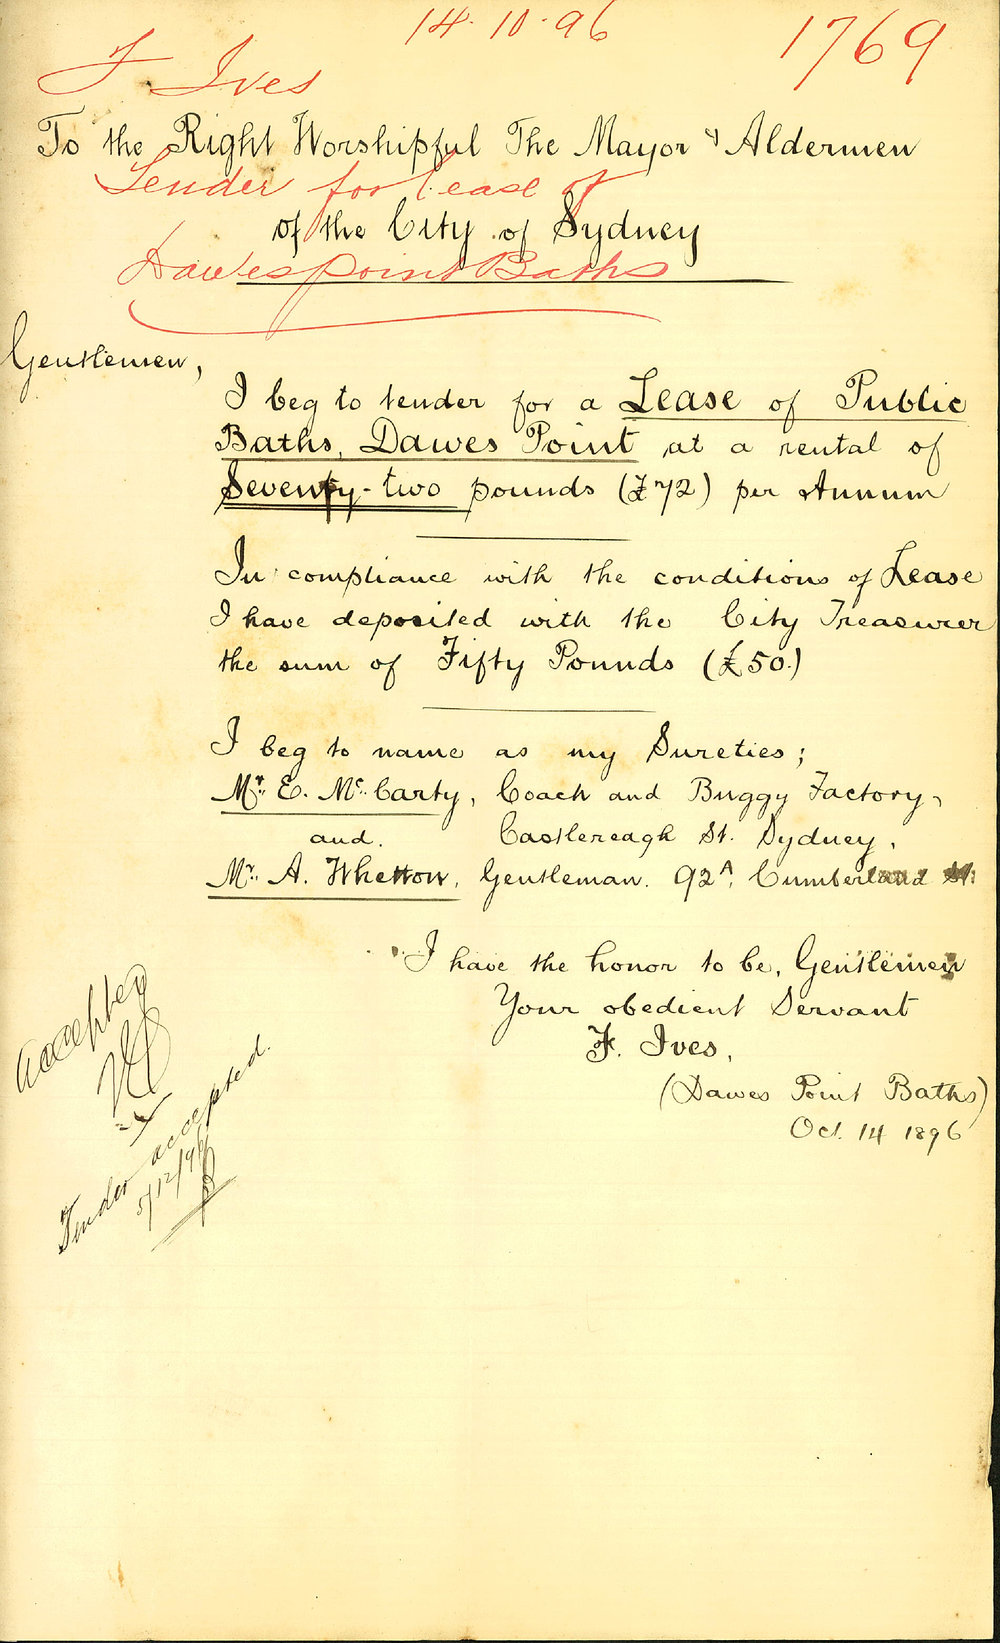 14.10.96
1769
F. Ives
To the Right Worshipful The Mayor & Aldermen
Tender for lease of
of the City of Sydney
Dawes point Baths
Gentlemen,
I beg to tender for a Lease of Public
Baths, Dawes Point at a rental of
Seventy-two pounds (£72) per Annum
In compliance with the conditions of Lease
I have deposited with the City Treasurer
the sum of Fifty Pounds (£50.)
I beg to name as my Sureties;
Mr. E. Mc. Carty, Coach and Buggy Factory,
and. Castlereagh St. Sydney,
Mr. A. Whetton, Gentleman. 92A, Cumberland St.
I have the honor to be, Gentlemen
Your obedient Servant
F. Ives,
(Dawes Point Baths)
Oct. 14 1896
Accepted
Tender accepted.